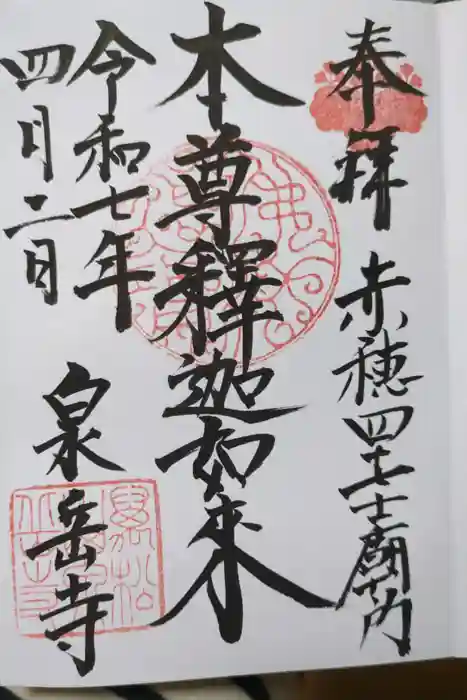 奉拝
赤穂四十七士廟所内
本尊釋迦如来
令和七年
四月二日
泉岳寺